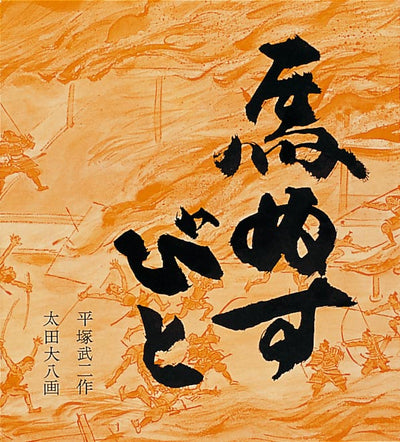 馬ぬす
びと
平塚武二作
太田大八画